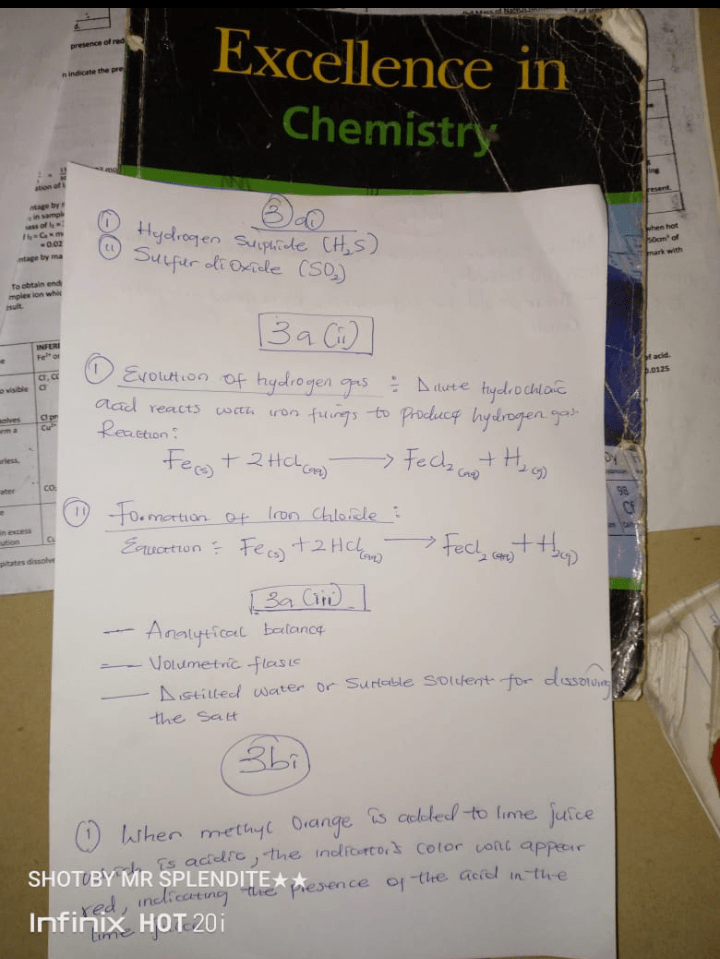 presence of red
n indicate the pre
Excellence in
Chemistry
3ai
i Hydrogen Sulphide (H2S)
ii Sulfur diOxide (SO2)
3a(ii)
I Evolution of hydrogen gas : Dilute hydrochloric
acid reacts with iron filings to produce hydrogen gas
Reaction:
Fe(s) + 2HCl(aq) → FeCl2(aq) + H2(g)
II Formation of Iron Chloride :
Equation : Fe(s) + 2HCl(aq) → FeCl2(aq) + H2(g)
3a(iii)
— Analytical balance
— Volumetric flask
— Distilled water or Suitable Solvent for dissolving
the Salt
3bi
I When methyl Orange is added to lime juice
which is acidic, the indicator's color will appear
red, indicating the presence of the acid in the
lime juice
SHOT BY MR SPLENDITE★★
Infinix HOT 20i
To obtain end
mplex ion whic
esult.
INFERE
o visible
in excess
pitates dissolve
when hot
50cm³ of
mark with
of acid.
0.0125
98
Cf